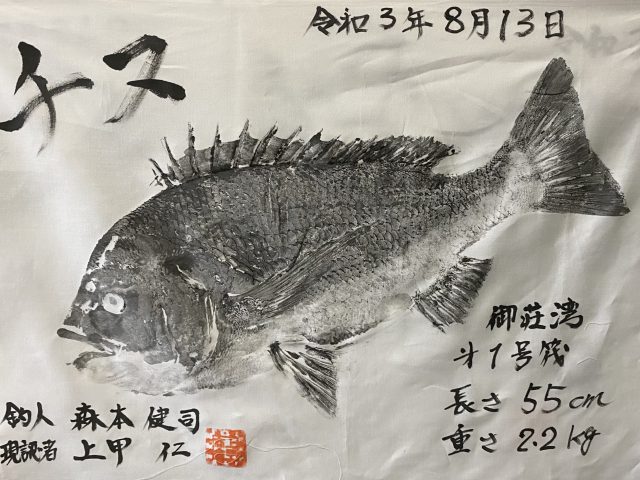 令和3年8月13日
チヌ
御荘湾
才1号筏
長さ55cm
重さ2.2kg
釣人 森本健司
現認者 上甲 仁